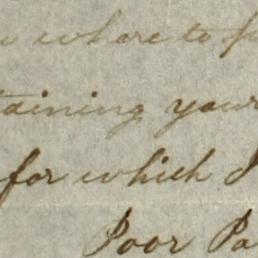 where to f
taining your
for which I
Poor Pa